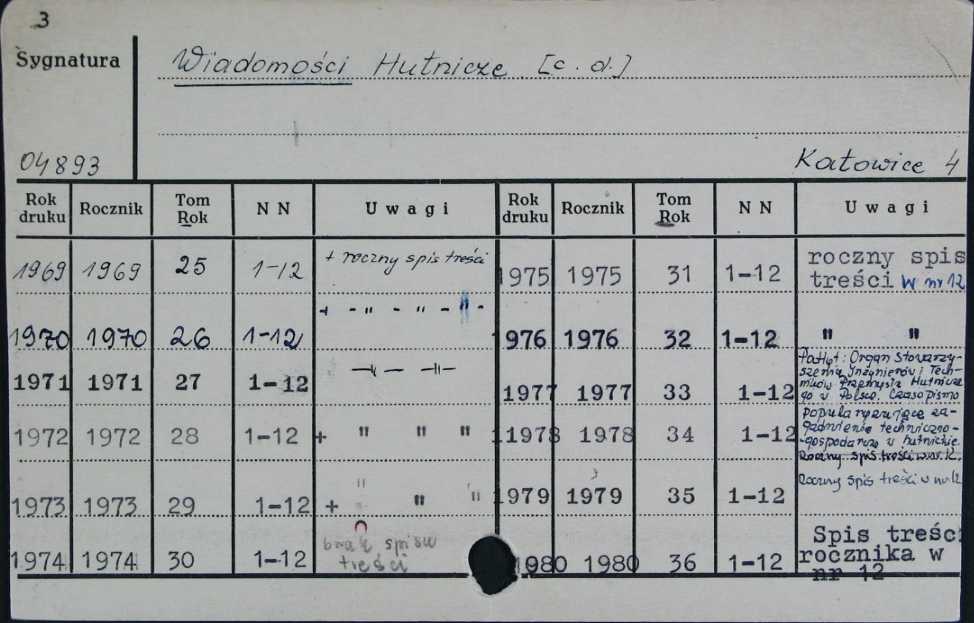 3
Sygnatura
Wiadomości Hutnicze [c.d.]
04893
Katowice 4
Rok druku Rocznik Tom Rok NN Uwagi Rok druku Rocznik Tom Rok NN Uwagi
1969 1969 25 1-12 + roczny spis treści
1970 1970 26 1-12 + - " - " - " -
1971 1971 27 1-12 —"— —"—
1972 1972 28 1-12 + " " "
1973 1973 29 1-12 + " " "
1974 1974 30 1-12 brak spisu
treści
1975 1975 31 1-12 roczny spis
treści w nr 12
1976 1976 32 1-12 " "
1977 1977 33 1-12 Organ Stowarzy-
szenia Inżynierów i Tech-
ników Przemysłu Hutnicze
go w Polsce. Czasopismo
11978 1978 34 1-12 popularyzujące za-
gadnienie techniczno-
-gospodarcze w hutnictwie.
Roczny spis treści w nr 12.
1979 1979 35 1-12 Roczny spis treści w nr 12
1980 1980 36 1-12 Spis treści
rocznika w
nr 12